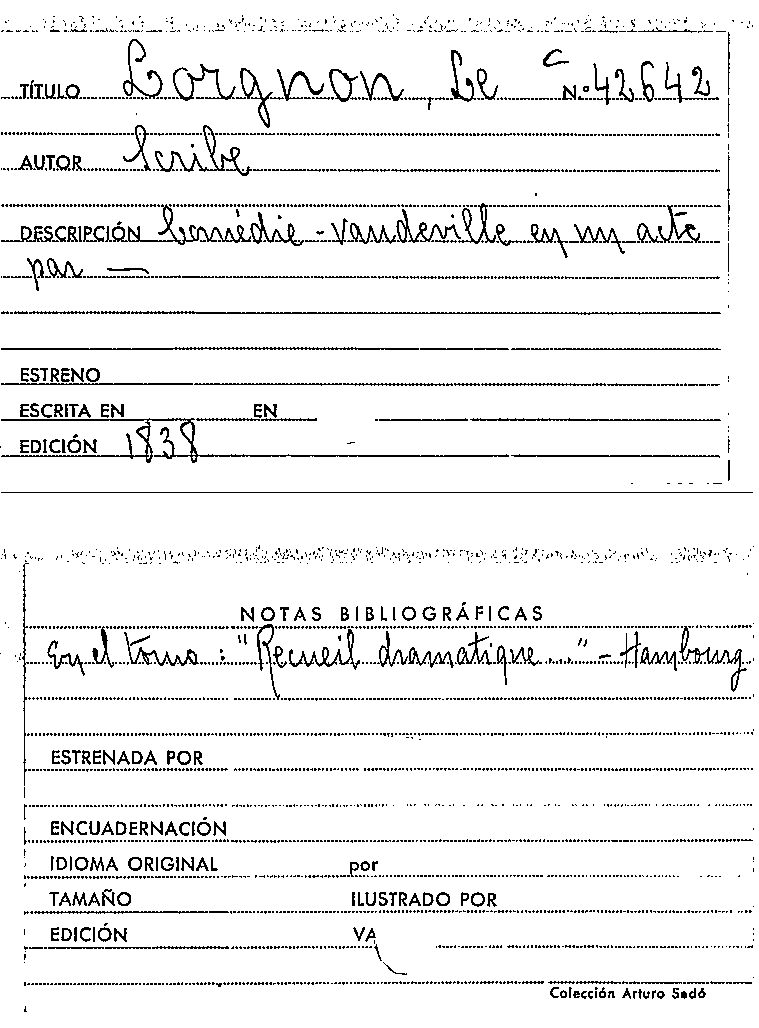 TÍTULO Lorgnon, Le C N.º 42642
AUTOR Scribe
DESCRIPCIÓN Comédie-vaudeville en un acte
par —
ESTRENO
ESCRITA EN EN
EDICIÓN 1838
NOTAS BIBLIOGRÁFICAS
En el tomo: "Recueil dramatique..." - Hambourg
ESTRENADA POR
ENCUADERNACIÓN
IDIOMA ORIGINAL por
TAMAÑO ILUSTRADO POR
EDICIÓN VA
Colección Arturo Sedó